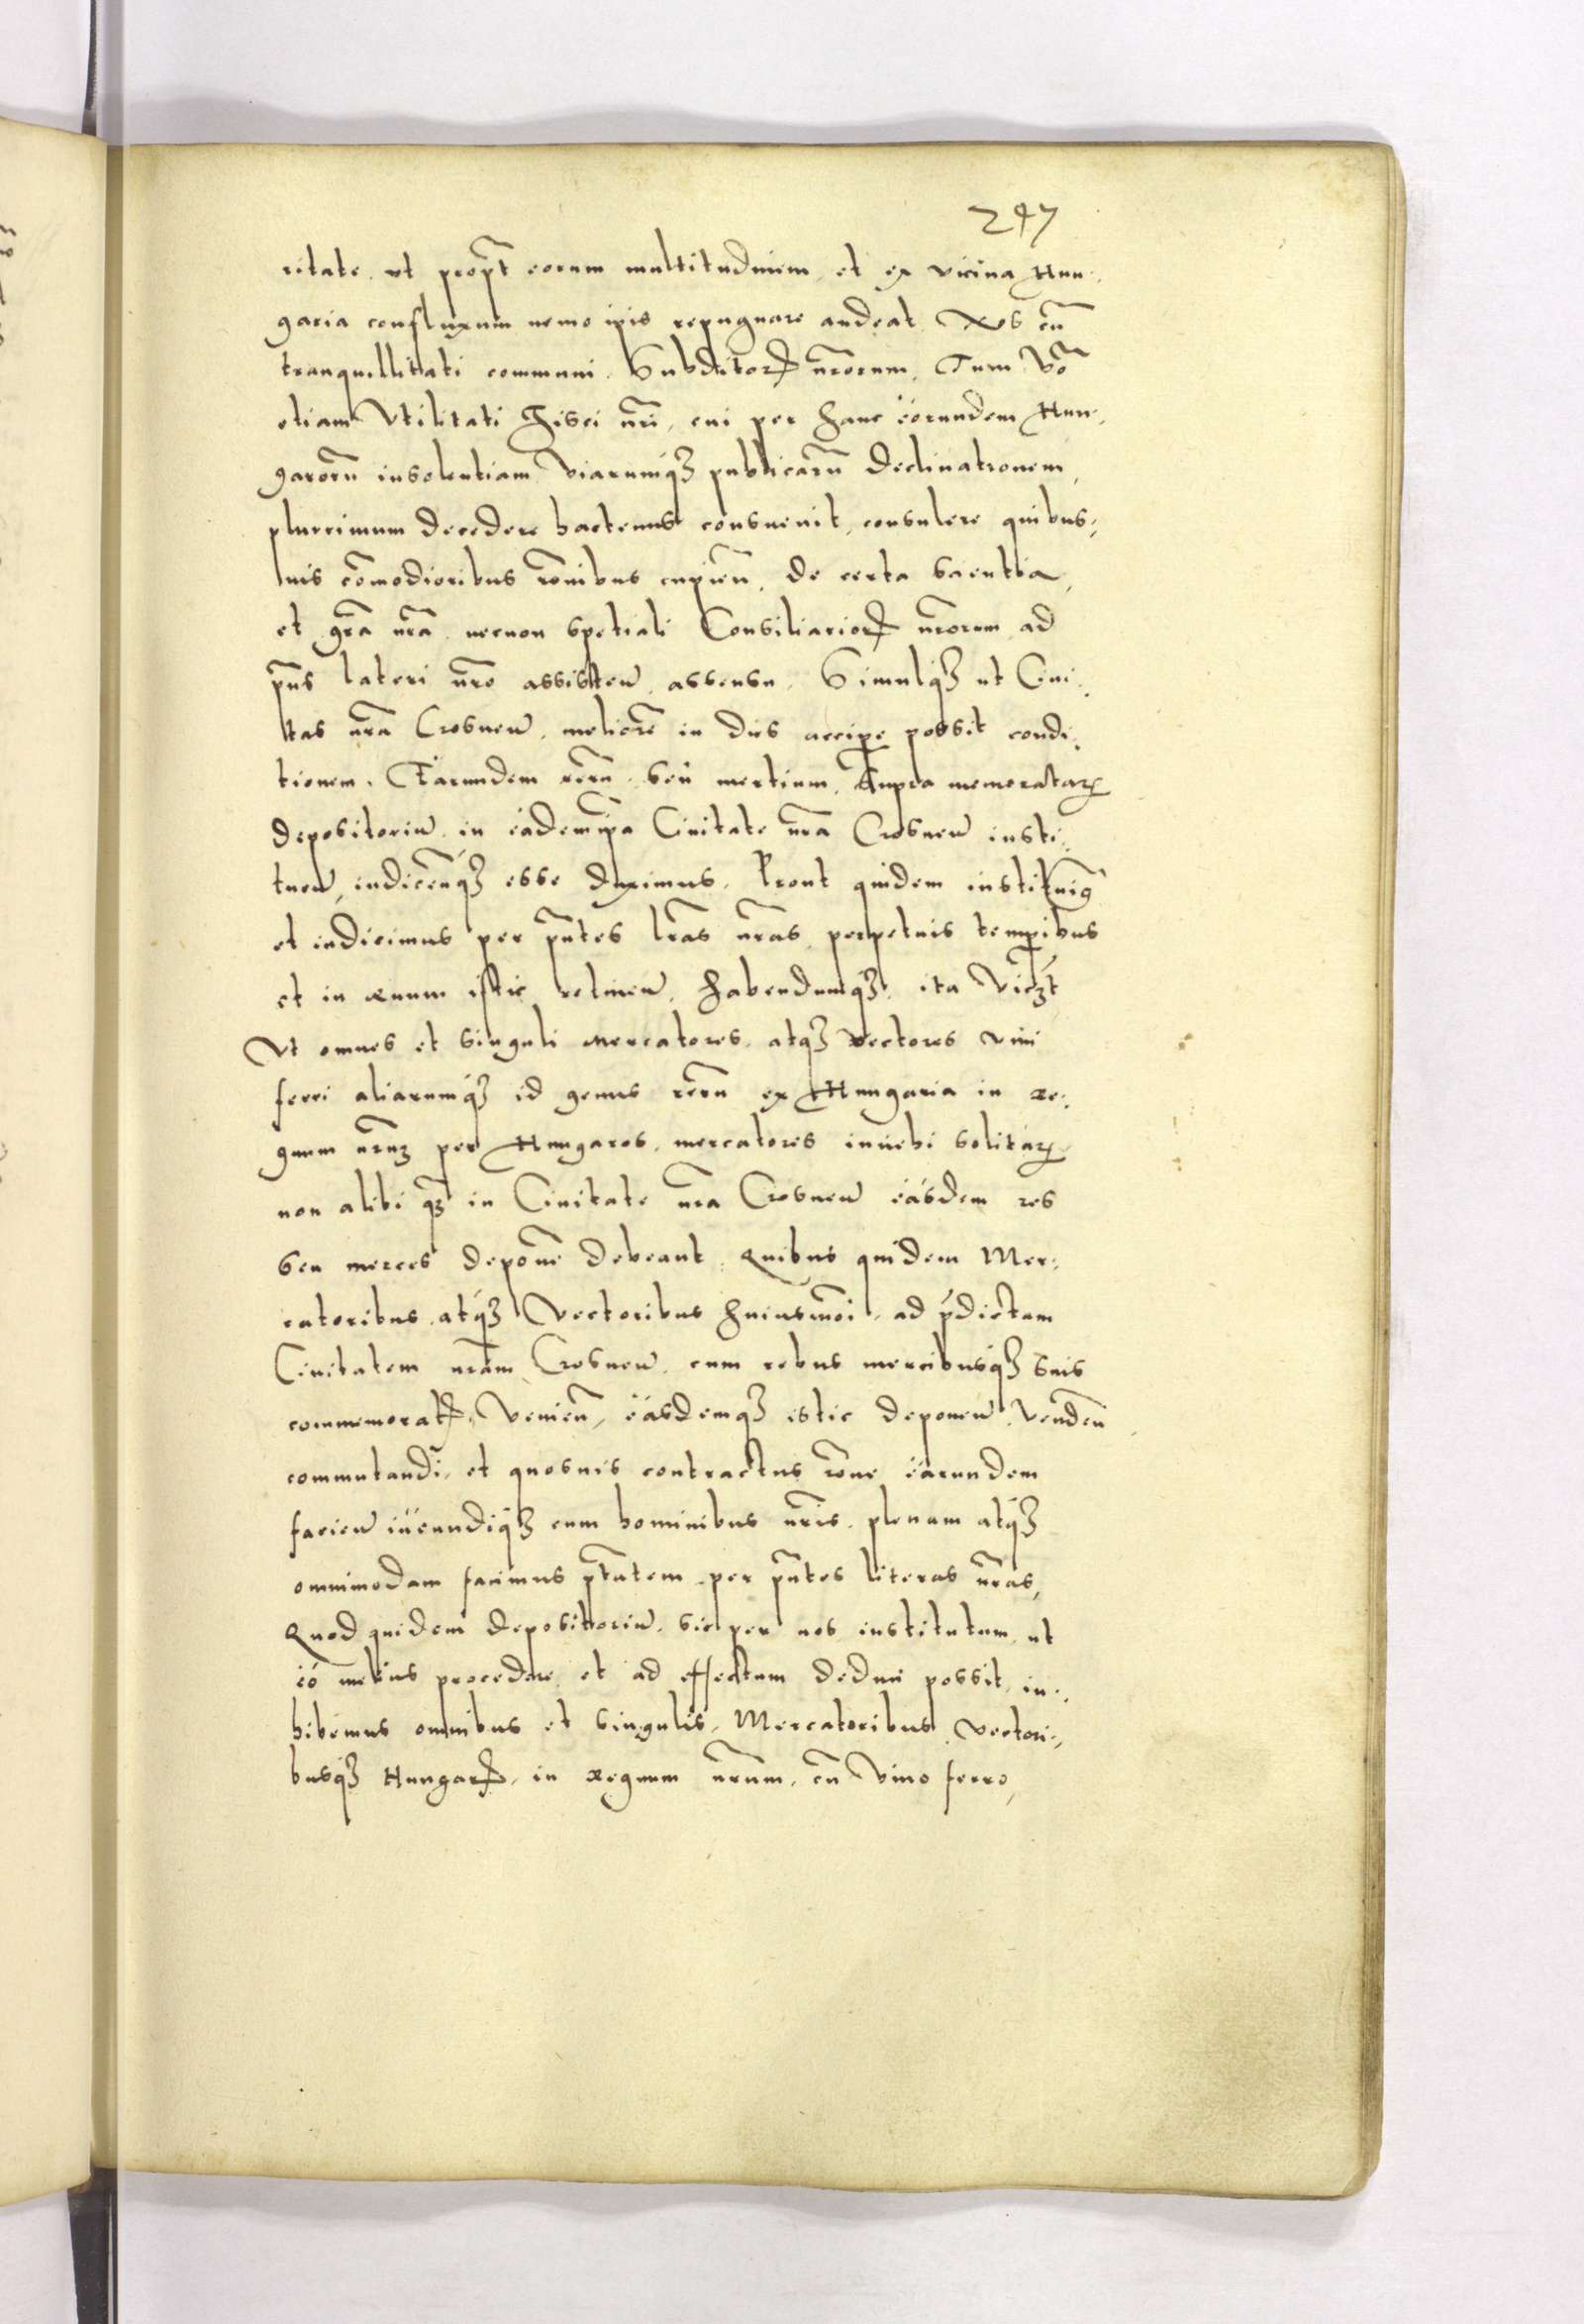 247
ritate ut propt̃ eorum multitudinem et ex vicina Hun-
garia confluxum nemo ip̃is repugnare audeat Nos cũ
tranquillitati communi Subditorꝝ nr̃orum, Tum Vo͂
etiam Utilitati Fisci nr̃i, cui per hanc eorundem Hun-
garorũ insolentiam Viarumqꝫ publicarũ Declinationem,
plurimum decedere hactenus consuevit, consulere quibus-
vis cõmodioribus rõnibus cupien̄, De certa scientia,
et gr̃a nr̃a necnon spetiali Consiliarioꝝ nr̃orum ad
p̃ns lateri nr̃o assisten̄ assensu, Simulqꝫ ut Civi-
tas nr̃a Crosnen̄ meliorẽ in dies accipe possit condi-
tionem, Earundem rerũ seu mertium, Supra memorataꝝ
depositoriũ in eadem ip̃a Civitate nr̃a Crosnen̄ insti-
tuen̄, indicenqꝫ esse duximus, Prout quidem instituimꝰ
et indicimus per p̃ntes lr̃as nr̃as perpetuis temp̃ibus
et in ævum istic retinen̄, habendumqꝫ, ita Viczt
Ut omnes et singuli mercatores, atqꝫ vectores vini
ferri aliarumqꝫ id genus rerũ ex Hungaria in Re-
gnum nr̃uꝫ per Hungaros mercatores invehi solitaꝝ
non alibi qꝫ in Civitate nr̃a Crosnen̄ easdem res
seu merces deponẽ debeant, Quibus quidem Mer-
catoribus atqꝫ Vectoribus huiusmõi, ad p̃dictam
Civitatem nr̃am Crosnen̄ cum rebus mercibusqꝫ suis
commemoratꝭ, Venien̄, easdemqꝫ istic deponen̄, Vendẽn
commutandi, et quosvis contractus rõne earundem
facien̄ ineundiqꝫ cum hominibus nr̃is, plenam atqꝫ
omnimodam facimus p̃tatem per p̃ntes literas nr̃as,
Quod quidem depositoriũ, sic per nos institutum ut
eo melius procedere et ad effectum deduci possit, in-
hibemus omnibus et singulis, Mercatoribus, vectori-
busqꝫ Hungarꝭ, in Regnum nr̃um, cũ Vino ferro,